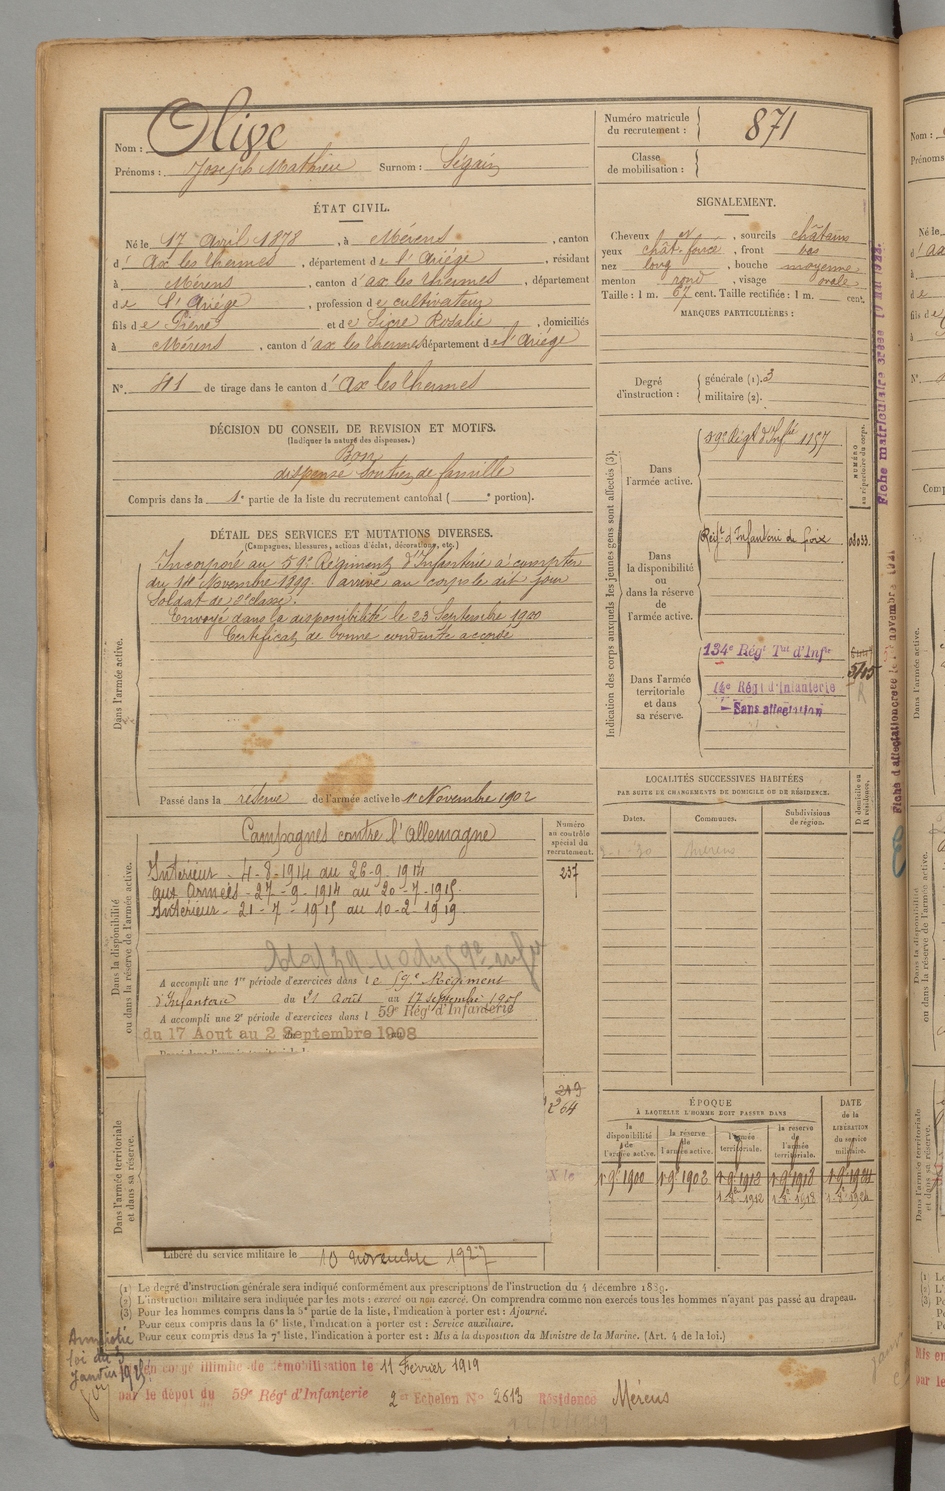 Nom : Olive
Prénoms : Joseph Mathieu Surnom : Ségain
ÉTAT CIVIL.
Né le 17 Avril 1878, à Mérens, canton
d' Ax les Thermes, département de l'Ariége, résidant
à Mérens, canton d'ax les thermes, département
de l'Ariége, profession de cultivateur
fils de Pierre et de Sicre Rosalie, domiciliés
à Mérens, canton d'ax les thermes département de l'Ariége
N° 41 de tirage dans le canton d'Ax les Thermes
DÉCISION DU CONSEIL DE REVISION ET MOTIFS.
(Indiquer la nature des dispenses.)
Bon
dispensé soutien de famille
Compris dans la 1e partie de la liste du recrutement cantonal ( e portion).
DÉTAIL DES SERVICES ET MUTATIONS DIVERSES.
(Campagnes, blessures, actions d'éclat, décorations, etc.)
Dans l'armée active.
Incorporé au 59e Régiment d'Infanterie à compter
du 14 Novembre 1899. arrivé au corps le dit jour
Soldat de 2e classe.
Envoyé dans la disponibilité le 23 Septembre 1900
Certificat de bonne conduite accordé
Passé dans la réserve de l'armée active le 1er Novembre 1902
Dans la disponibilité
ou dans la réserve de l'armée active.
Campagnes contre l'Allemagne
Intérieur - 4-8-1914 au 26-9-1914
aux Armées - 27-9-1914 au 20-7-1915
Intérieur - 21-7-1915 au 10-2-1919
A accompli une 1re période d'exercices dans le 59e Régiment
d'Infanterie du 21 Août au 17 septembre 1905
A accompli une 2e période d'exercices dans l 59e Régt d'Infanterie
du 17 Aout au 2 Septembre 1908
Numéro
au contrôle
spécial du
recrutement.
237
219
264
Dans l'armée territoriale
et dans sa réserve.
Libéré du service militaire le 10 novembre 1927
Numéro matricule
du recrutement : 871
Classe
de mobilisation :
SIGNALEMENT.
Cheveux, sourcils châtains
yeux chât. foncé, front bas
nez long, bouche moyenne
menton rond, visage ovale
Taille : 1 m. 67 cent. Taille rectifiée : 1 m. cent.
MARQUES PARTICULIÈRES :
Degré
d'instruction :
générale (1). 3
militaire (2).
Indication des corps auxquels les jeunes gens sont affectés (3).
NUMÉRO
au répertoire du corps.
Dans
l'armée active.
59e Régt d'Infrie 1157
Dans
la disponibilité
ou
dans la réserve
de
l'armée active.
Régt d'Infanterie de Foix
Dans l'armée
territoriale
et dans
sa réserve.
134e Régt Tal d'Infie
5105
14e Régt d'Infanterie
Sans affectation
LOCALITÉS SUCCESSIVES HABITÉES
PAR SUITE DE CHANGEMENTS DE DOMICILE OU DE RÉSIDENCE.
Dates.
Communes.
Subdivisions
de région.
D. domicile ou
R. résidence.
Mérens
ÉPOQUE
À LAQUELLE L'HOMME DOIT PASSER DANS
la
disponibilité
de
l'armée active.
la réserve
de
l'armée active.
l'armée
territoriale.
la réserve
de
l'armée
territoriale.
DATE
de la
LIBÉRATION
du service
militaire.
1 9e 1900
1 9e 1902
1 9e 1912
1 9e 1918
(1) Le degré d'instruction générale sera indiqué conformément aux prescriptions de l'instruction du 4 décembre 1889.
(2) L'instruction militaire sera indiquée par les mots : exercé ou non exercé. On comprendra comme non exercés tous les hommes n'ayant pas passé au drapeau.
(3) Pour les hommes compris dans la 5e partie de la liste, l'indication à porter est : Ajourné.
Pour ceux compris dans la 6e liste, l'indication à porter est : Service auxiliaire.
Pour ceux compris dans la 7e liste, l'indication à porter est : Mis à la disposition du Ministre de la Marine. (Art. 4 de la loi.)
Amnistié
loi du 3
Janvier 1925
en congé illimité de démobilisation le 11 Février 1919
par le dépôt du 59e Régt d'Infanterie 2e Echelon N° 2613 Résidence Mérens